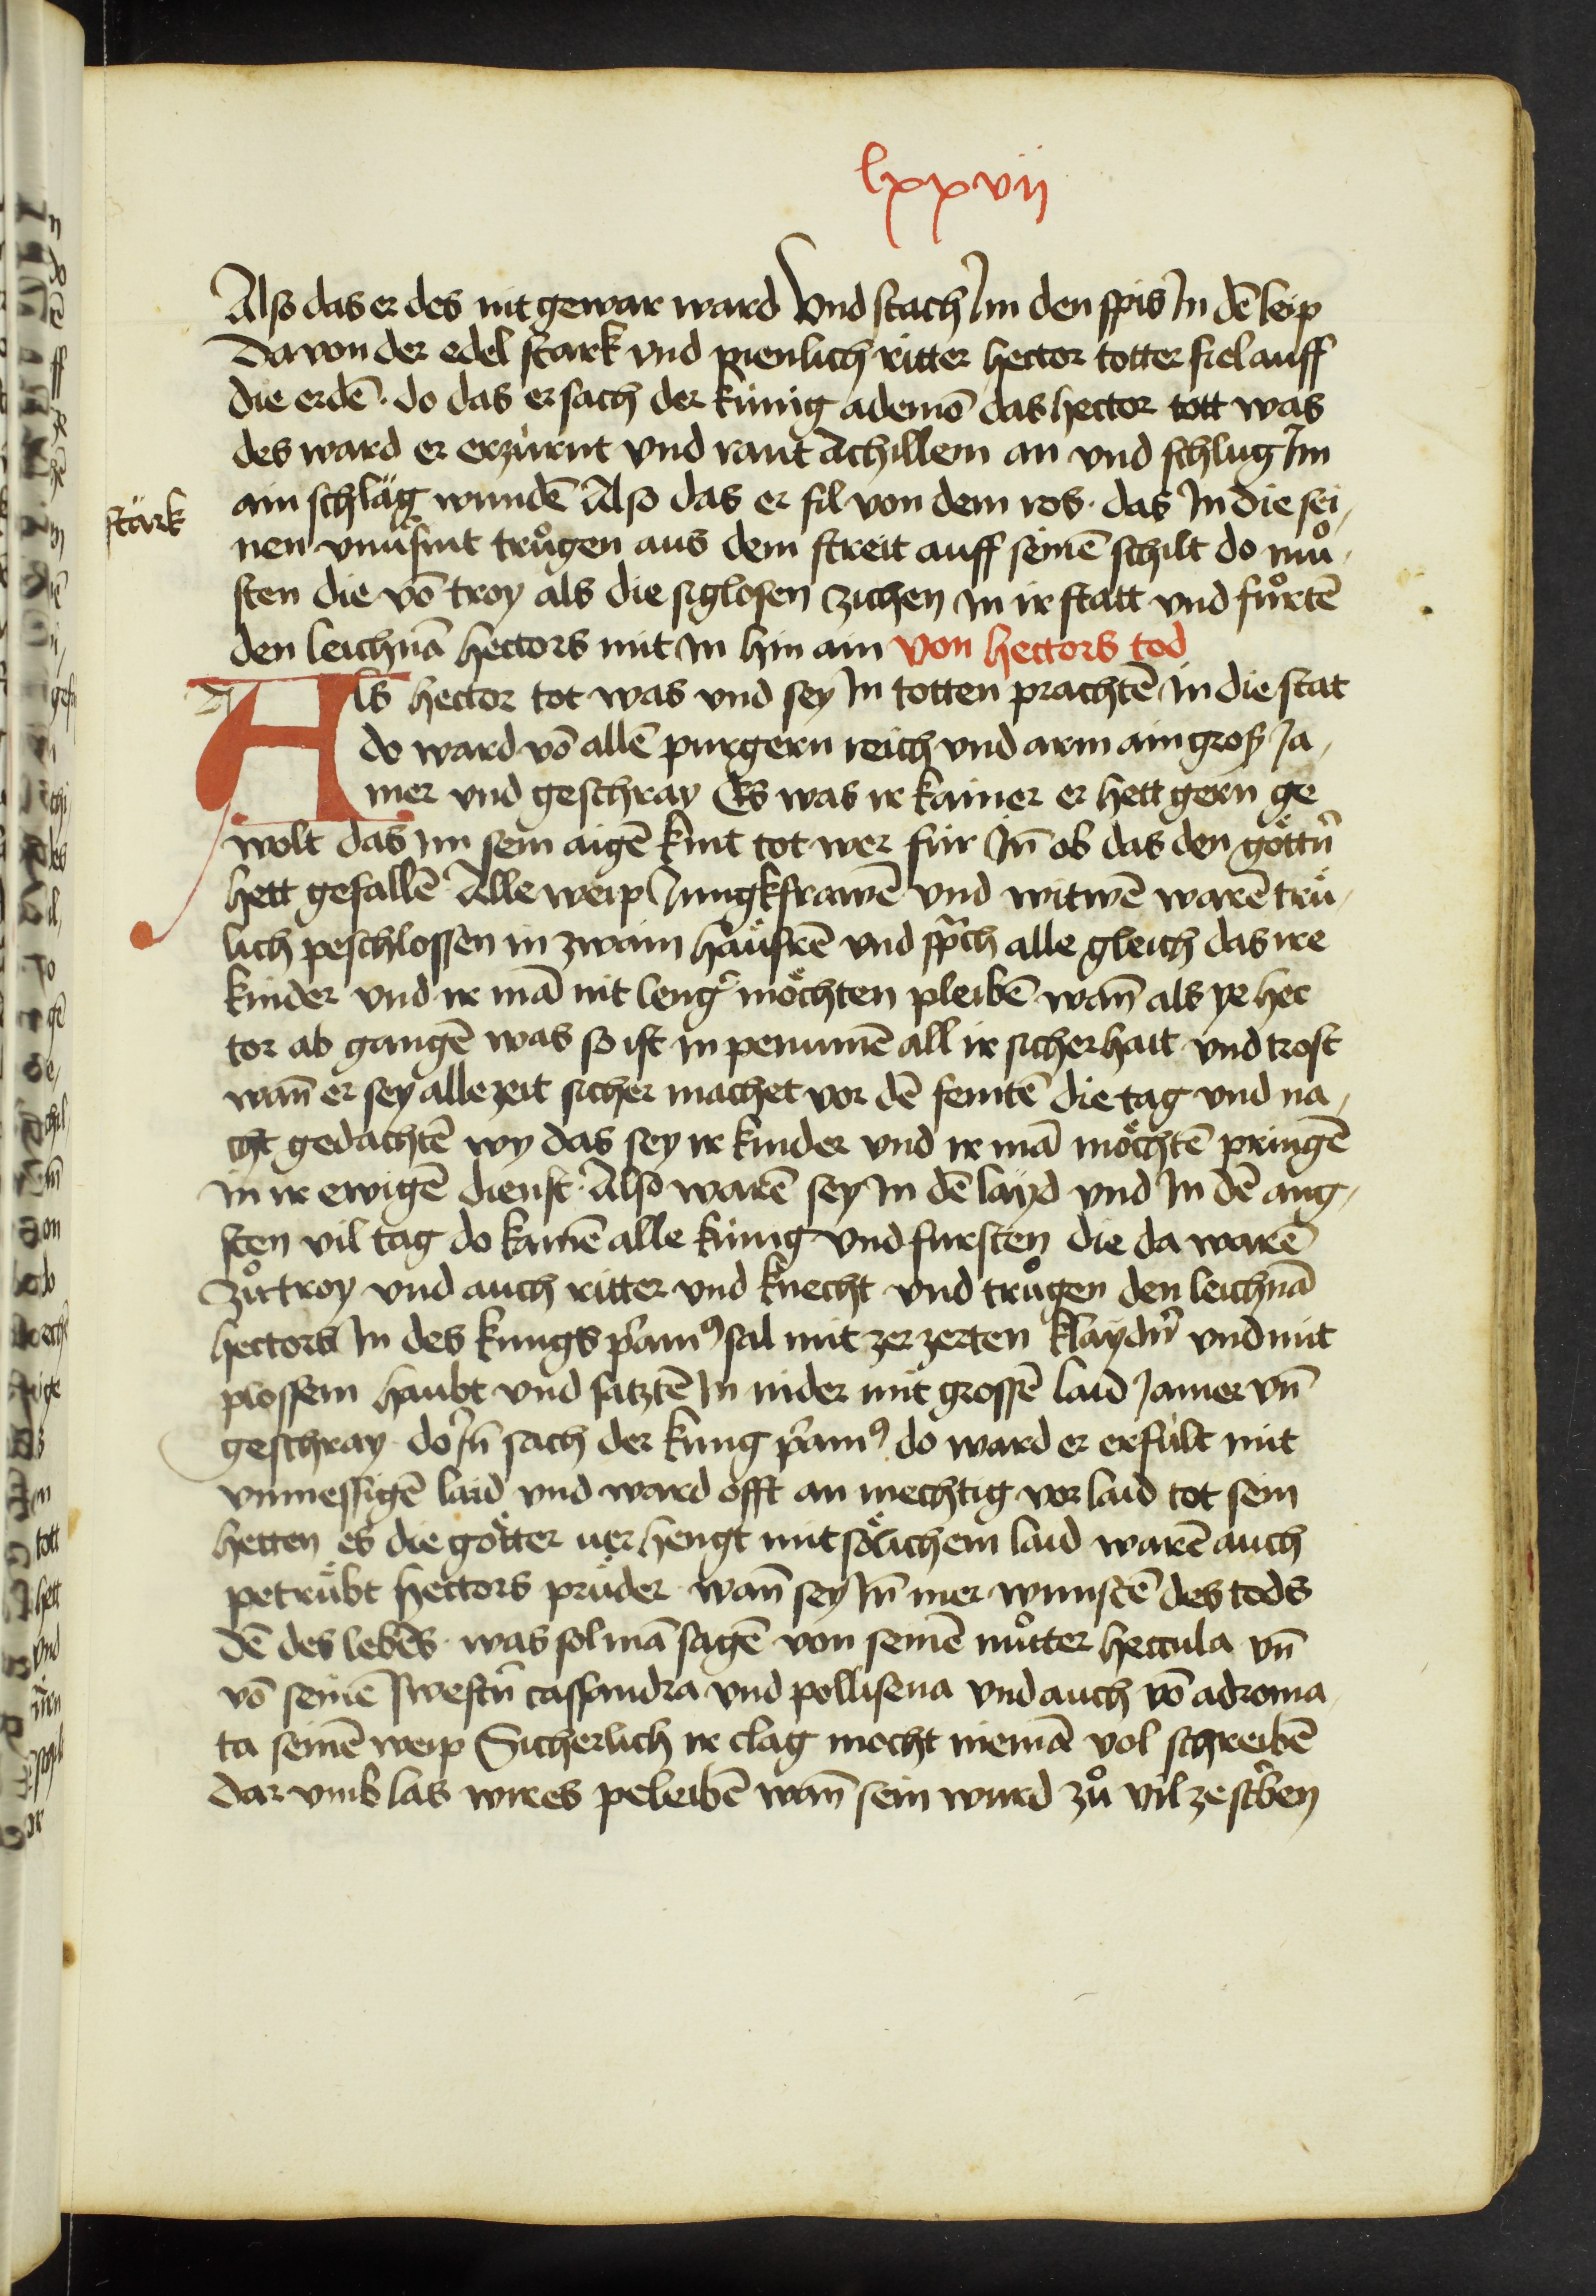 lxxvij
Also das er des nit gewar ward Vnd stach Im den spis In dē leip
Da von der edel stark vnd pienlich ritter hector totter fiel auff
die erdē · do das ersach der künig ademō das hector tott was
des ward er erzürnt vnd rant Achillem an vnd schlug Im
ain schläg wundē Also das er fil von dem ros · das In die sei,
stärk
nen vnuͤsint truͦgen aus dem streit auff seinē schilt do muͦ,
sten die vō troy als die siglosen zichen in ir statt vnd fuͦrtē
den leichnā hectors mit In hin ain von hectors tod
Als hector tot was vnd sey In totten prachtē in die stat
do ward vō allē purgern reich vnd arm ain groß Ja,
mer vnd geschray Es was ir kainer er hett gern ge
wolt das im sein aigē kint tot wer für In̄ ob das den göttn̄
hett gefallē Alle weip Jungkfrawē vnd witwē warē trü,
lich peschlossen in zwain häusrē vnd sprach alle gleich das ire
kinder vnd ir mā nit leng̉ möchten pleibē wan̄ als ye hec
tor ab gangē was so ist in penumē all ir sicherhait vnd trost
wan̄ er sey alle zeit sicher machet vor dē feintē die tag vnd na,
cht gedachtē wy das sey ir kinder vnd ir mā möchtē pringē
in ir ewigē dienst · Also warē sey In dē layd vnd In dē ang,
sten vil tag do kamē alle künig vnd fursten die da warē
zuͦ troy vnd auch ritter vnd knecht vnd truͦgen den leichnā
hectors In des kungs p̉amꝯ sal mit zerzerten klaydn̄ vnd mit
plossem haubt vnd satztē In nider mit grossē laid Jamer vn̄
geschray · do In̄ sach der kung p̉amꝯ do ward er erfült mit
vnmessigē laid vnd ward offt an mechtig vor laid tot sein
hetten es die götter uerhengt mit sölichem laid warē auch
petrübt hectors prüder · wan̄ sey In̄ mer wunstē des tods
dē des lebēs · was sol mā sagē von seinē muͦtter heccula vn̄
vō seinē swestn̄ cassandra vnd pollisena vnd auch vō adroma,
ta seinē weip Sicherlich ir clag mocht niemā vol schreibē
dar vmb las wir es peleibē wan̄ sein wurd zuͦ vil ze scr̉ben